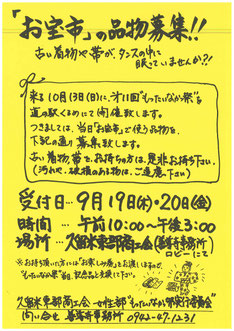 「お宝市」の品物募集!!
古い着物や帯が、タンスの中に
眠っていませんか?!
来る10月13日(日)に、オ11回"もったいなか祭"を
道の駅くるめにて(開)催致します。
つきましては、当日"お宝市"で使う品物を、
下記の通り募集致します。
古い着物、帯をお持ちの方は、是非お持ち下さい。
(汚れや、破損のある物は、ご遠慮下さい)
受付日…9月19日(木)・20日(金)
時間…午前10:00〜午後3:00
場所…久留米東部商工会(善導寺事務所)
ロビーにて
※お持ち頂いた方には"お楽しみ券"をお渡ししますので、
"もったいなか祭"当日、記念品と交換して下さい。
久留米東部商工会 女性部"もったいなか祭実行委員会"
問い合せ 善導寺事務所 0942-47-1231